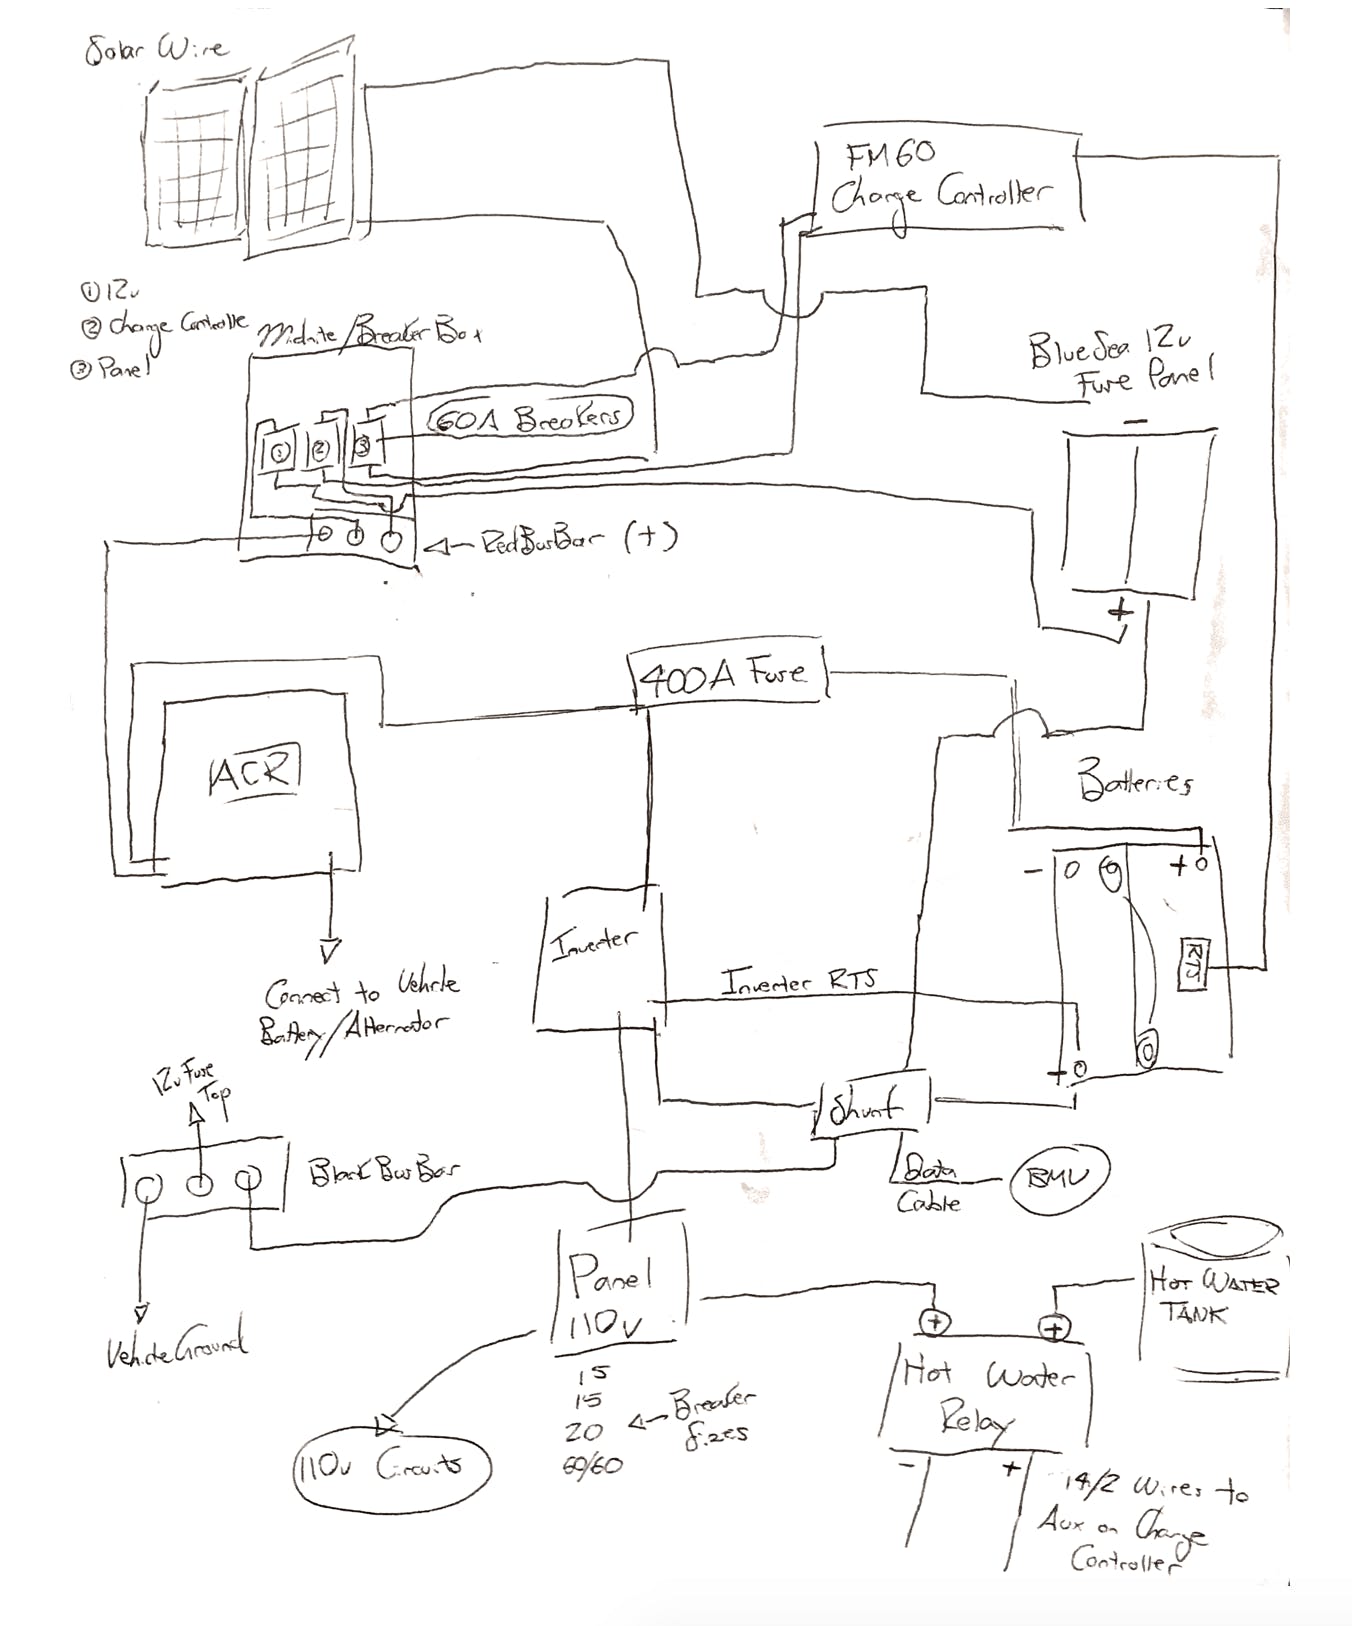 Solar Wire
FM60
Charge Controller
①12v
② Charge Controlle
③ Panel
Midnite/Breaker Box
BlueSea 12v
Fuse Panel
60A Breakers
① ② ③
-
RedBusBar (+)
+
400A Fuse
ACR
Batteries
- +
Inverter
RTS
Inverter RTS
Connect to Vehicle
Battery/Alternator
+
12v Fuse
Top
Shunt
Black Bus Bar
Data
Cable
BMV
Panel
110v
HOT WATER
TANK
+ +
Vehicle Ground
15
15
20
60/60
Breaker
Sizes
Hot Water
Relay
110v Circuits
- +
14/2 Wires to
Aux on Charge
Controller